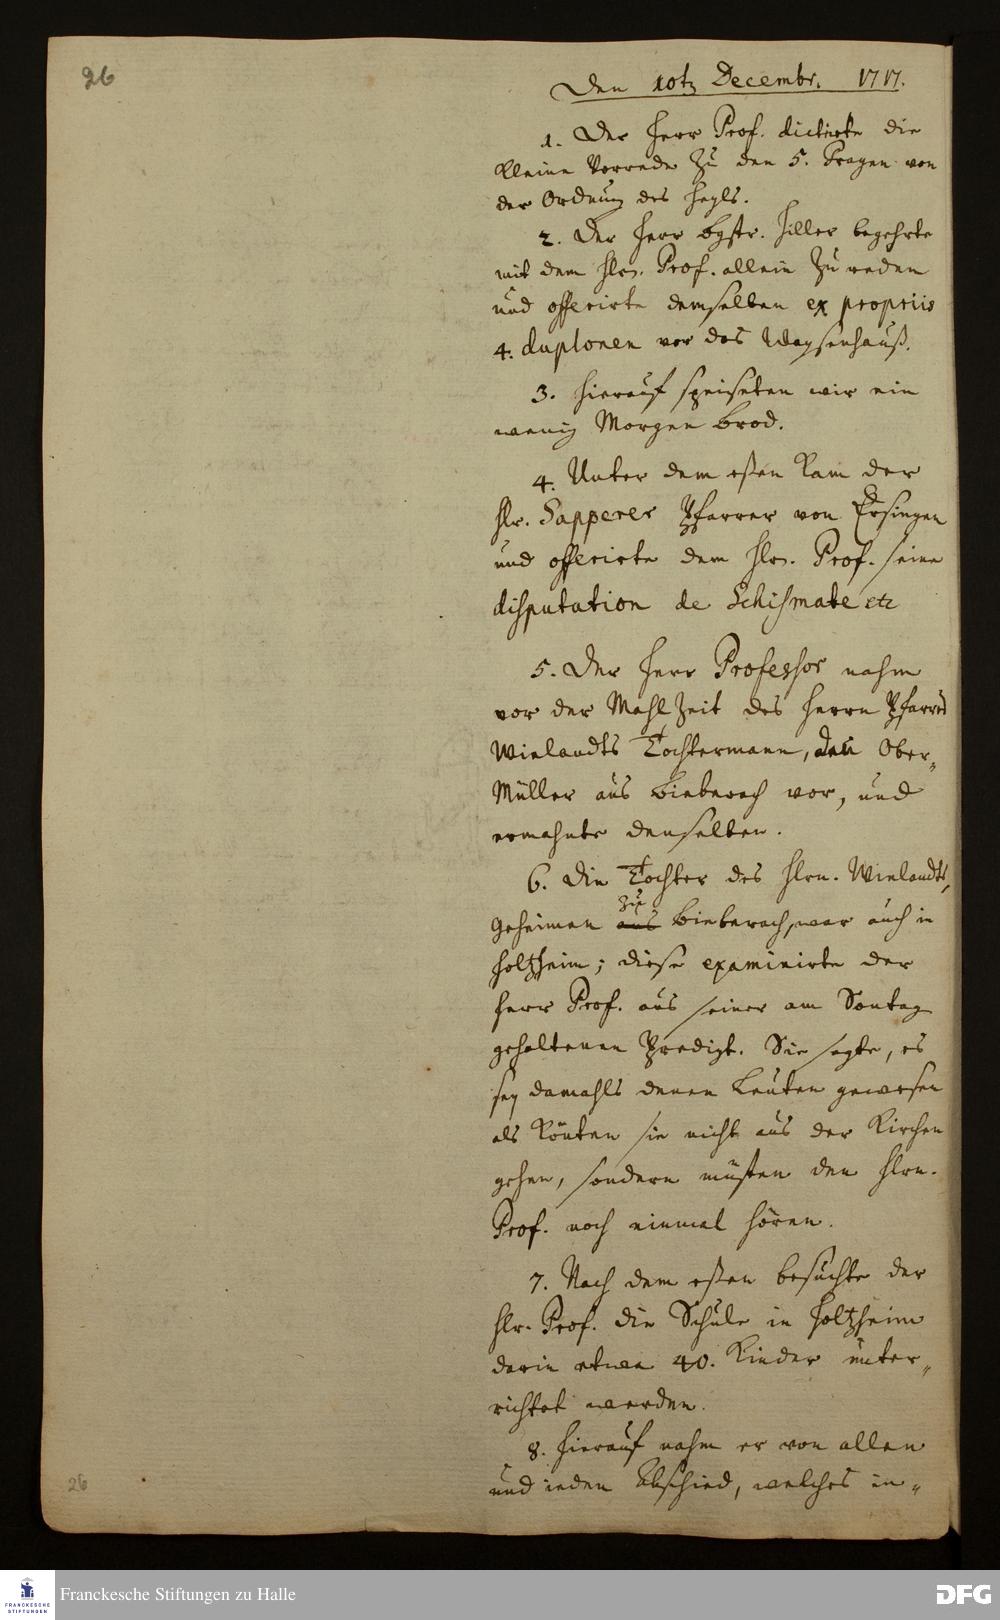 26
Den 10t. Decembr. 1717.
1. Der Herr Prof. dictirte die
kleine Vorrede zu den 5. Fragen von
der Ordnung des Heyls.
2. Der Herr Bgstr. Hiller begehrte
mit dem Hrn. Prof. allein zu reden
und offerirte demselben ex propriis
4. duplonen vor das Waysenhauß.
3. Hierauf speiseten wir ein
wenig Morgen brod.
4. Unter dem eßen kam der
Hr. Sapperer Pfarrer von Ersingen
und offerirte dem Hrn. Prof. seine
disputation de Schismate etc
5. Der Herr Professor nahm
vor der Mahlzeit des Herrn Pfarrers
Wielandts Tochtermann, den Ober-
Müller aus Bieberach vor, und
ermahnte denselben.
6. Die Tochter des Hrn. Wielandts,
Geheimen zu
aus Bieberach, war auch in
Holtzheim; diese examinirte der
Herr Prof. aus seiner am Sontag
gehaltenen Predigt. Sie sagte, es
sey damahls denen Leuten gewesen
als könten sie nicht aus der Kirchen
gehen, sondern müsten den Hrn.
Prof. noch einmal hören.
7. Nach dem eßen besuchte der
Hr. Prof. die Schule in Holtzheim
darin etwa 40. Kinder unter-
richtet werden.
8. Hierauf nahm er von allen
und ieden Abschied, welches in-
26
Franckesche Stiftungen zu Halle
FRANCKESCHE
STIFTUNGEN
DFG